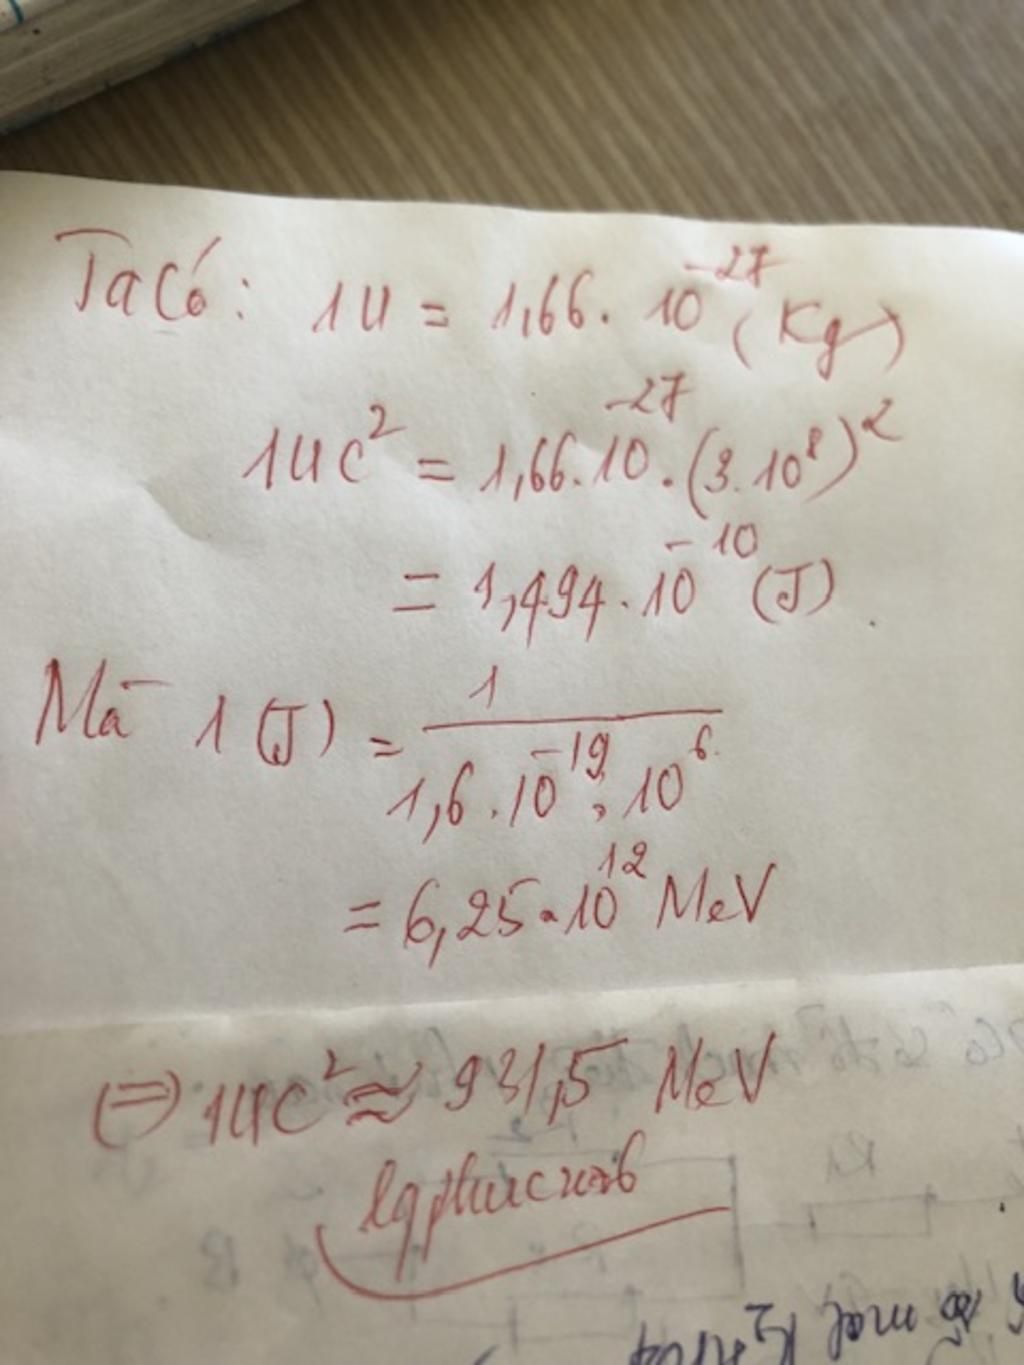 Ta có: 1u = 1,66. 10^-27 (Kg)
1uc² = 1,66.10^-27.(3.10^8)²
= 1,494.10^-10 (J)
Mà 1(J) = 1 / 1,6.10^-19.10^6
= 6,25.10^12 MeV
(=) 1uc² ≈ 931,5 MeV